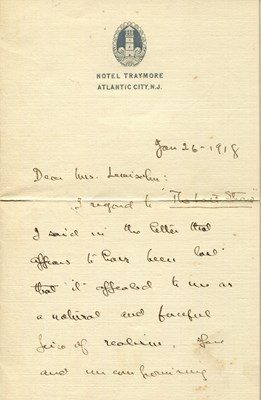 HOTEL TRAYMORE
ATLANTIC CITY, N.J.
Jan 26-1918
Dear Mrs. Lewisohn:
I regard to "The Last Straw"
I said in the letter that
appears to have been lost
that it appealed to me as
a natural and forceful
piece of realism,
and uncompromising